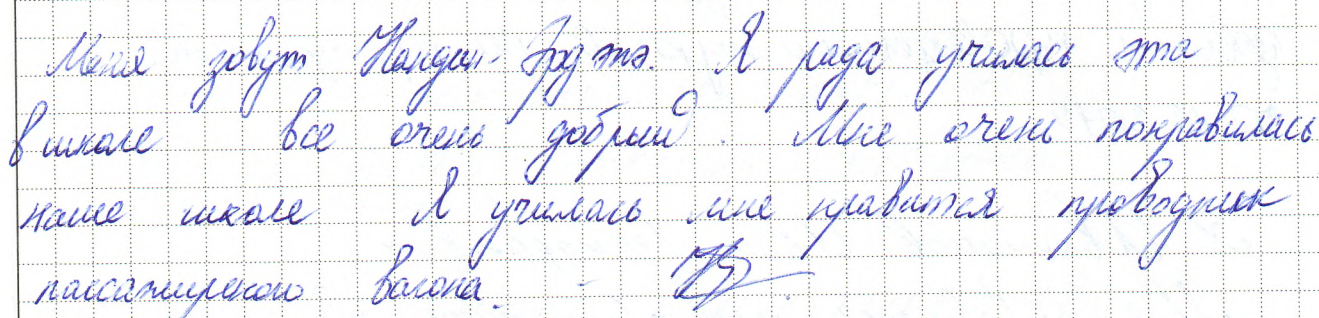 Меня зовут Нандин-Эрдэнэ. Я рада училась эта
в школе все очень добрый. Мне очень понравилась
наше школе Я училась мне нравится проводник
пассажирского вагона.